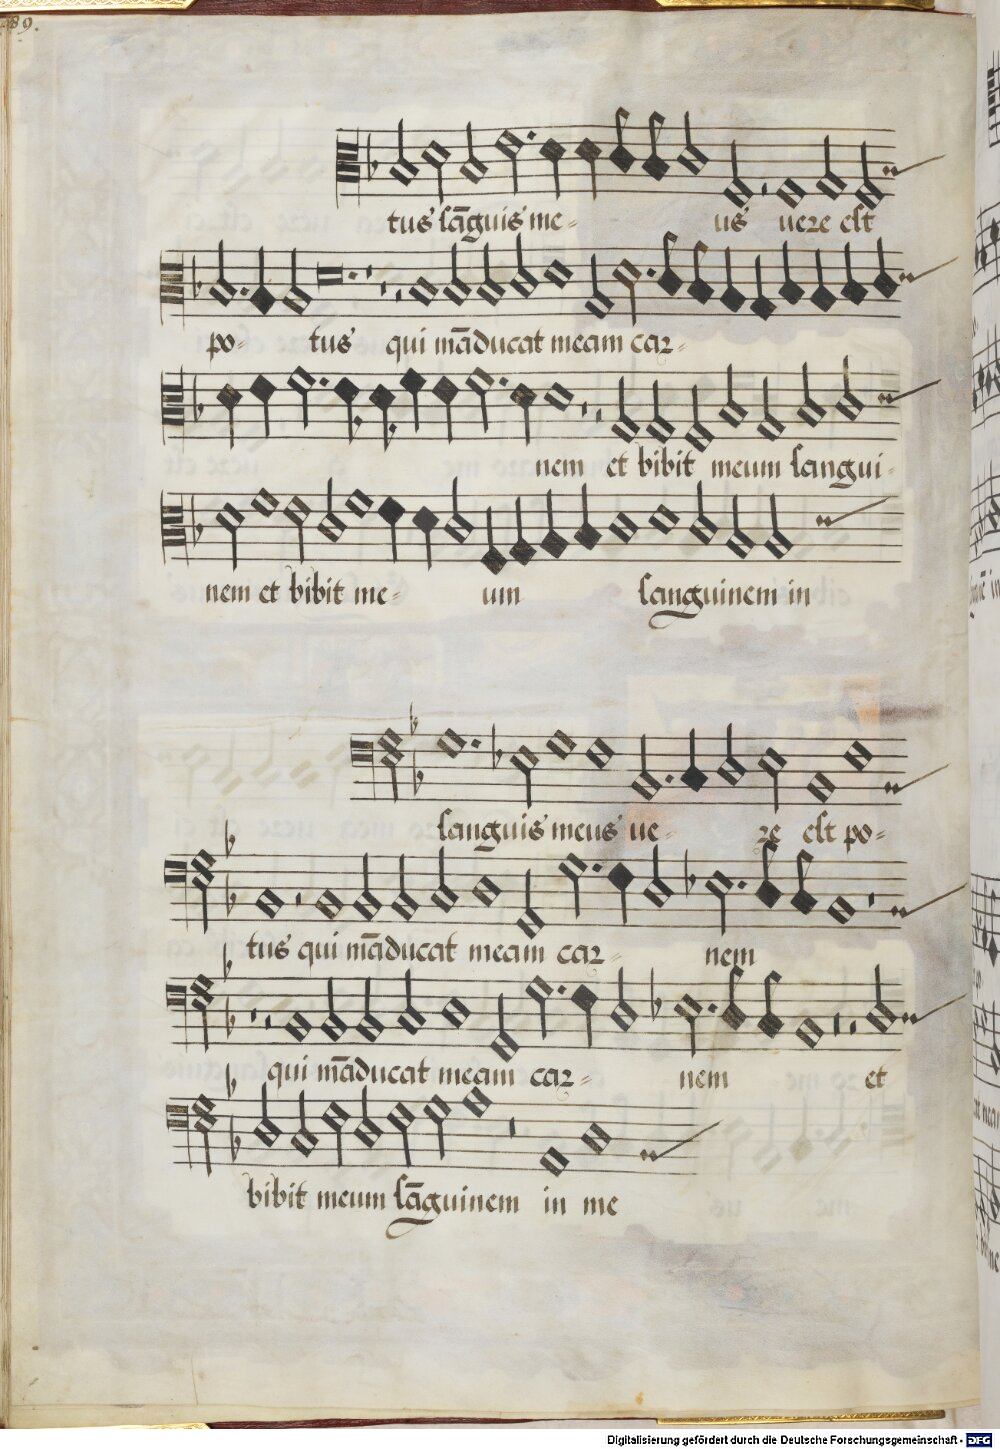 89.
tus sāguis me- us uere est
po- tus qui māducat meam car-
nem et bibit meum sangui-
nem et bibit me- um sanguinem in
sanguis meus ue- re est po-
tus qui māducat meam car- nem
qui māducat meam car- nem et
bibit meum sāguinem in me
Digitalisierung gefördert durch die Deutsche Forschungsgemeinschaft - DFG